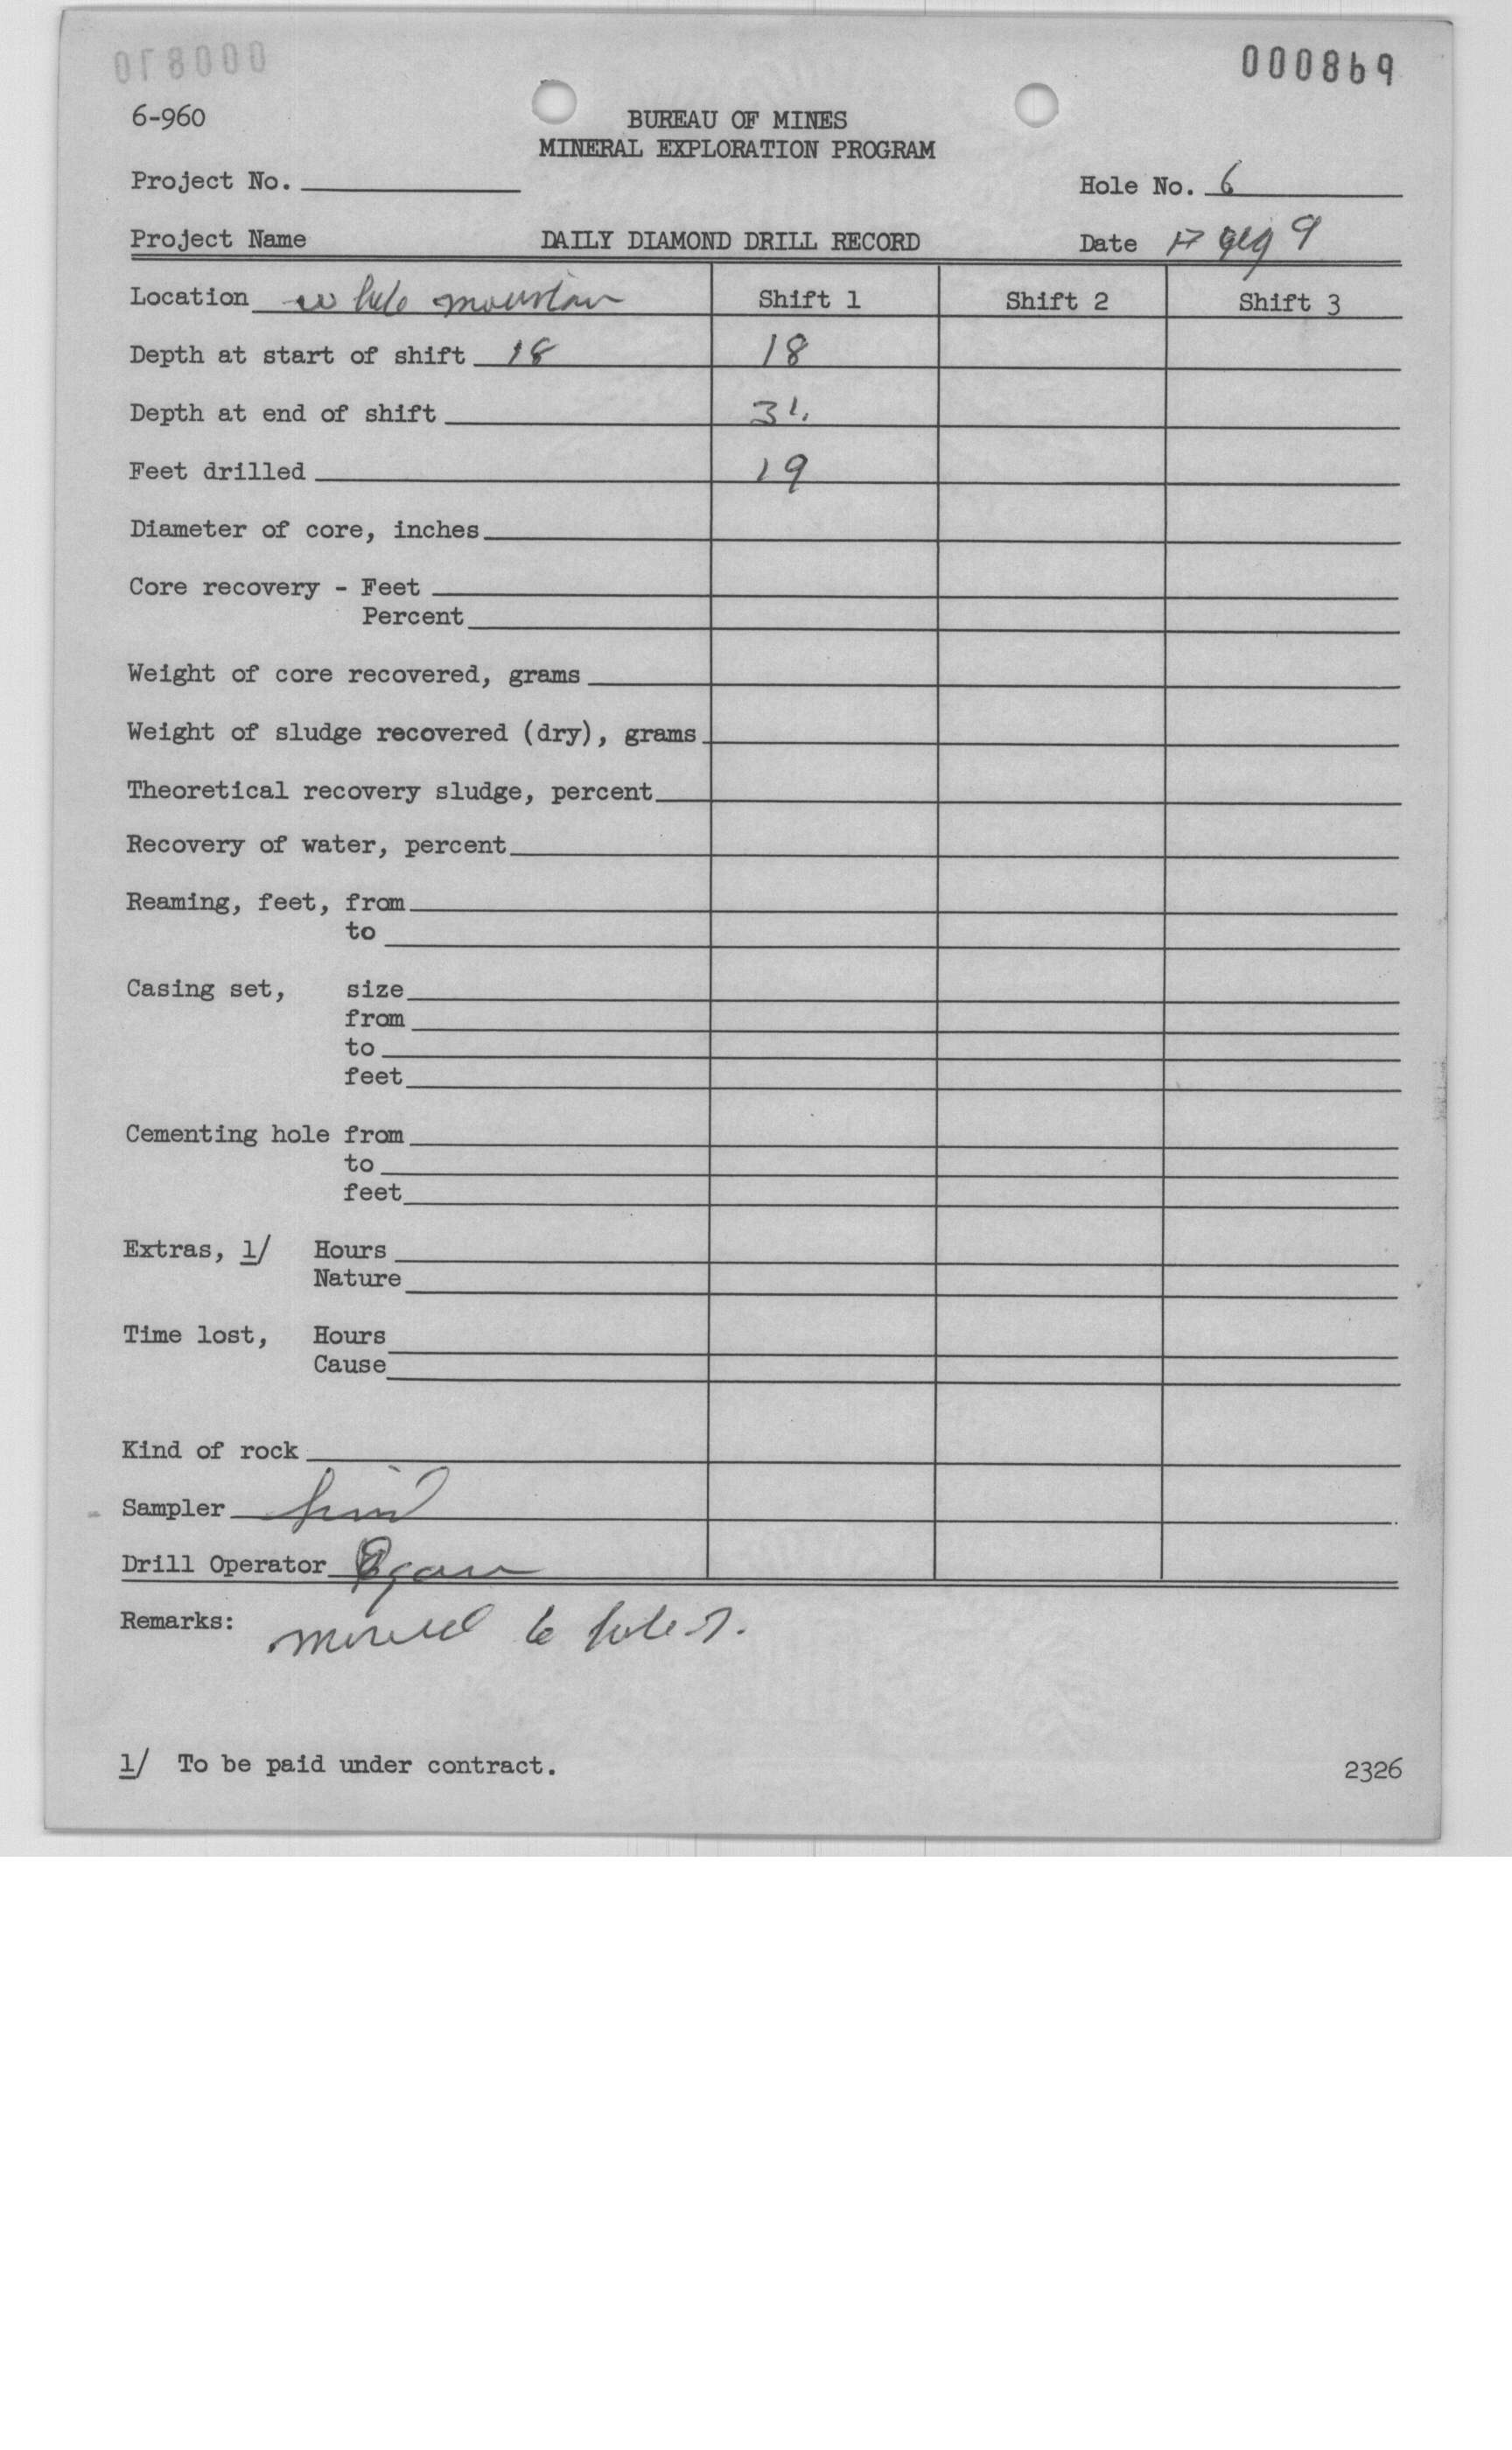 000869
6-960
BUREAU OF MINES
MINERAL EXPLORATION PROGRAM
Project No.
Hole No. 6
Project Name DAILY DIAMOND DRILL RECORD Date 9
Location mountain Shift 1 Shift 2 Shift 3
Depth at start of shift 18 18
Depth at end of shift
Feet drilled 19
Diameter of core, inches
Core recovery - Feet
Percent
Weight of core recovered, grams
Weight of sludge recovered (dry), grams
Theoretical recovery sludge, percent
Recovery of water, percent
Reaming, feet, from
to
Casing set, size
from
to
feet
Cementing hole from
to
feet
Extras, 1/ Hours
Nature
Time lost, Hours
Cause
Kind of rock
Sampler
Drill Operator
Remarks: moved to hole 7.
1/ To be paid under contract.
2326